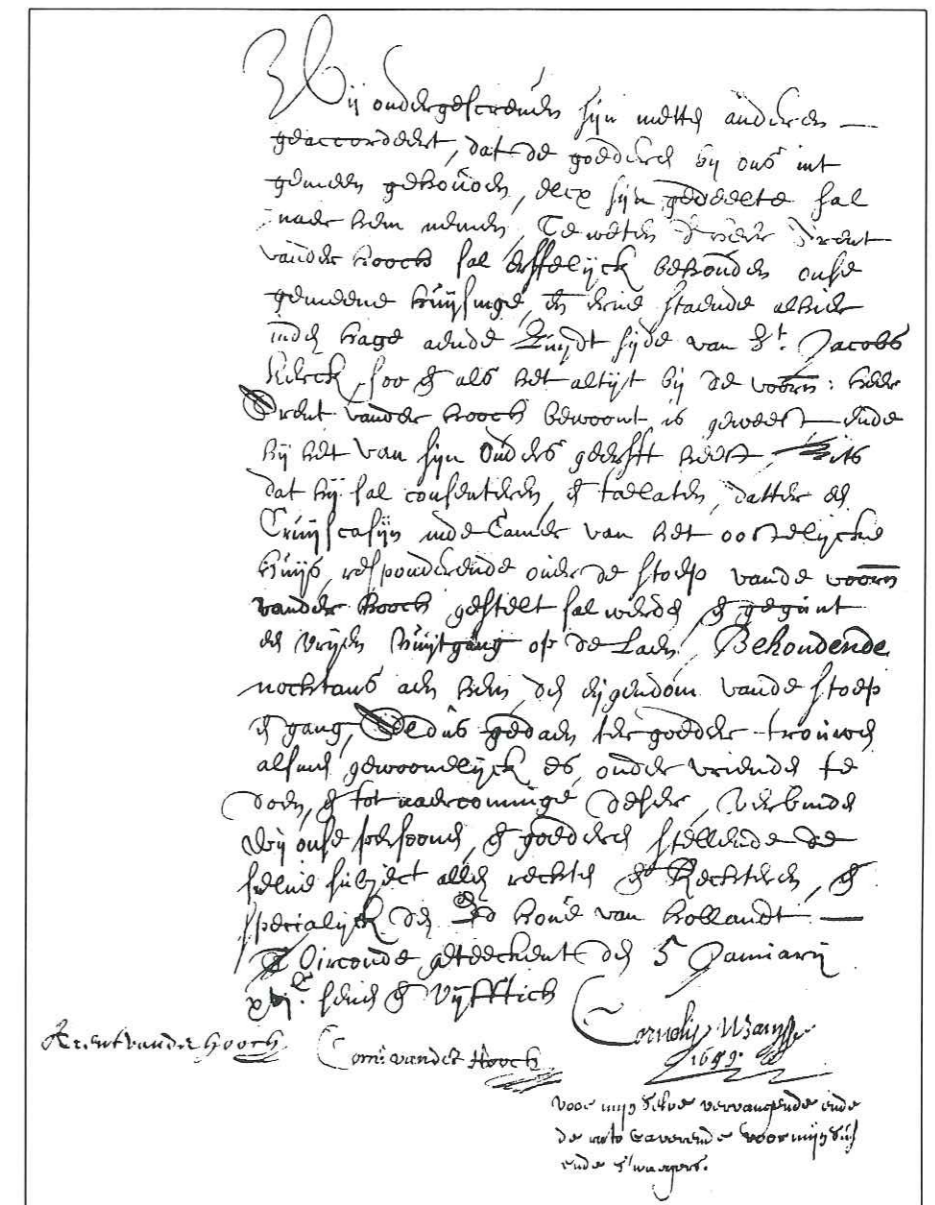 Wij ondergescreven sijn mette anderen
geaccordeert, dat de goederen bij ons int
gemeen gehouden, elcx sijn gedeelte sal
naer hem nemen, Te weten d'heer Arent
vander Hooch sal erffelijck behouden onse
gemeene huijsinge, en erve staende alhier
inden Hage aende Zuijdt sijde van St. Jacobs
kerck, soo en als het altijt bij de voorn: heer
Arent vander Hooch bewoont is geweest ende
hij het van sijn Ouders geerft heeft, Mits
dat hij sal consenteren, en toelaten, datter een
Cruijscasijn inde Camer van het oostelijcke
huijs, responderende onder de stoep vande voorn
vander Hooch gestelt sal werden en gegunt
een vrijen huijtgang op de Laen, Behoudende
nochtans aen hem, den eijgendom vande stoep
en gang, Aldus gedaen ter goeder trouwen
alsmen gewoonelijck es, onder vrienden te
doen, en tot naercominge deser, verbinden
wij onse persoonen, en goederen stellende de
selve subject allen rechten en Rechteren, en
specialijck den Ed hove van Hollandt
T Oirconde geteeckent den 5 Januarij
xvjc. seven en vijfftich
Arent vander Hooch. Corn vander Hooch Cornelis
voor mijn selve vervangende ende
de rato caverende voor mijn
ende swagers.